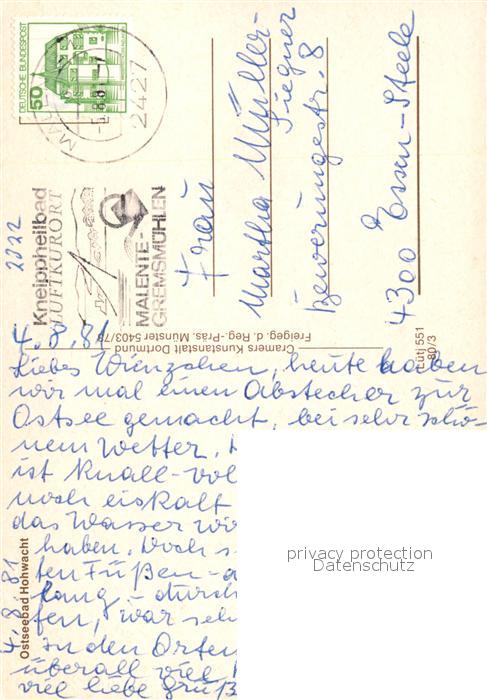 DEUTSCHE BUNDESPOST
50
2427
Kneippheilbad
LUFTKURORT
MALENTE-
GREMSMÜHLEN
Frau
Martha Müller-
Siegner
4300 Essen-Steele
Cramers Kunstanstalt Dortmund
Freigeg. d. Reg.-Präs. Münster 5403/78
Lütj 551
80/3
Ostseebad Hohwacht
4.8.81
Liebes Wienzchen, heute haben
wir mal einen Abstecher zur
Ostsee gemacht, bei sehr schö-
nem Wetter.
ist knall-vol
noch eiskalt
das Wasser
haben. Doch
ten Füßen
lang - durch
fen, war seh
in den Orten
überall viel
viel liebe Grüß
4.8.81
privacy protection
Datenschutz